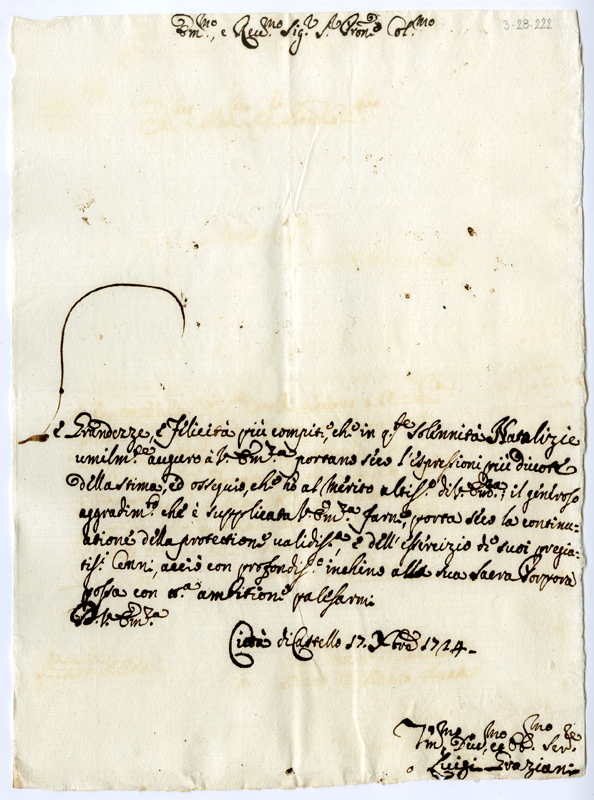 Em.mo, e Reu.mo Sig.r S.r Pron.e Col.mo
3-28-222
Le Grandezze, e felicità più compite, che in q.ste Solennità Natalizie
umilm.te auguro à V. Em.za portano séco l'espressioni più divote
della stima, ed ossequio, che hò al Mérito altis.o di V. Em.za; il géneroso
aggradim.to che è supplicata V. Em.za farne, porta séco la continu-
atione della protettione validis.a, e dell'esserçizio de suoi pregia-
tis.i Cenni, acciò con profondis.o inchino alla sua Sacra Porpora
possa con ambitione palesarmi
D. V. Em.za
Città di Castello 17. Xbre 1724.
Luigi Graziani